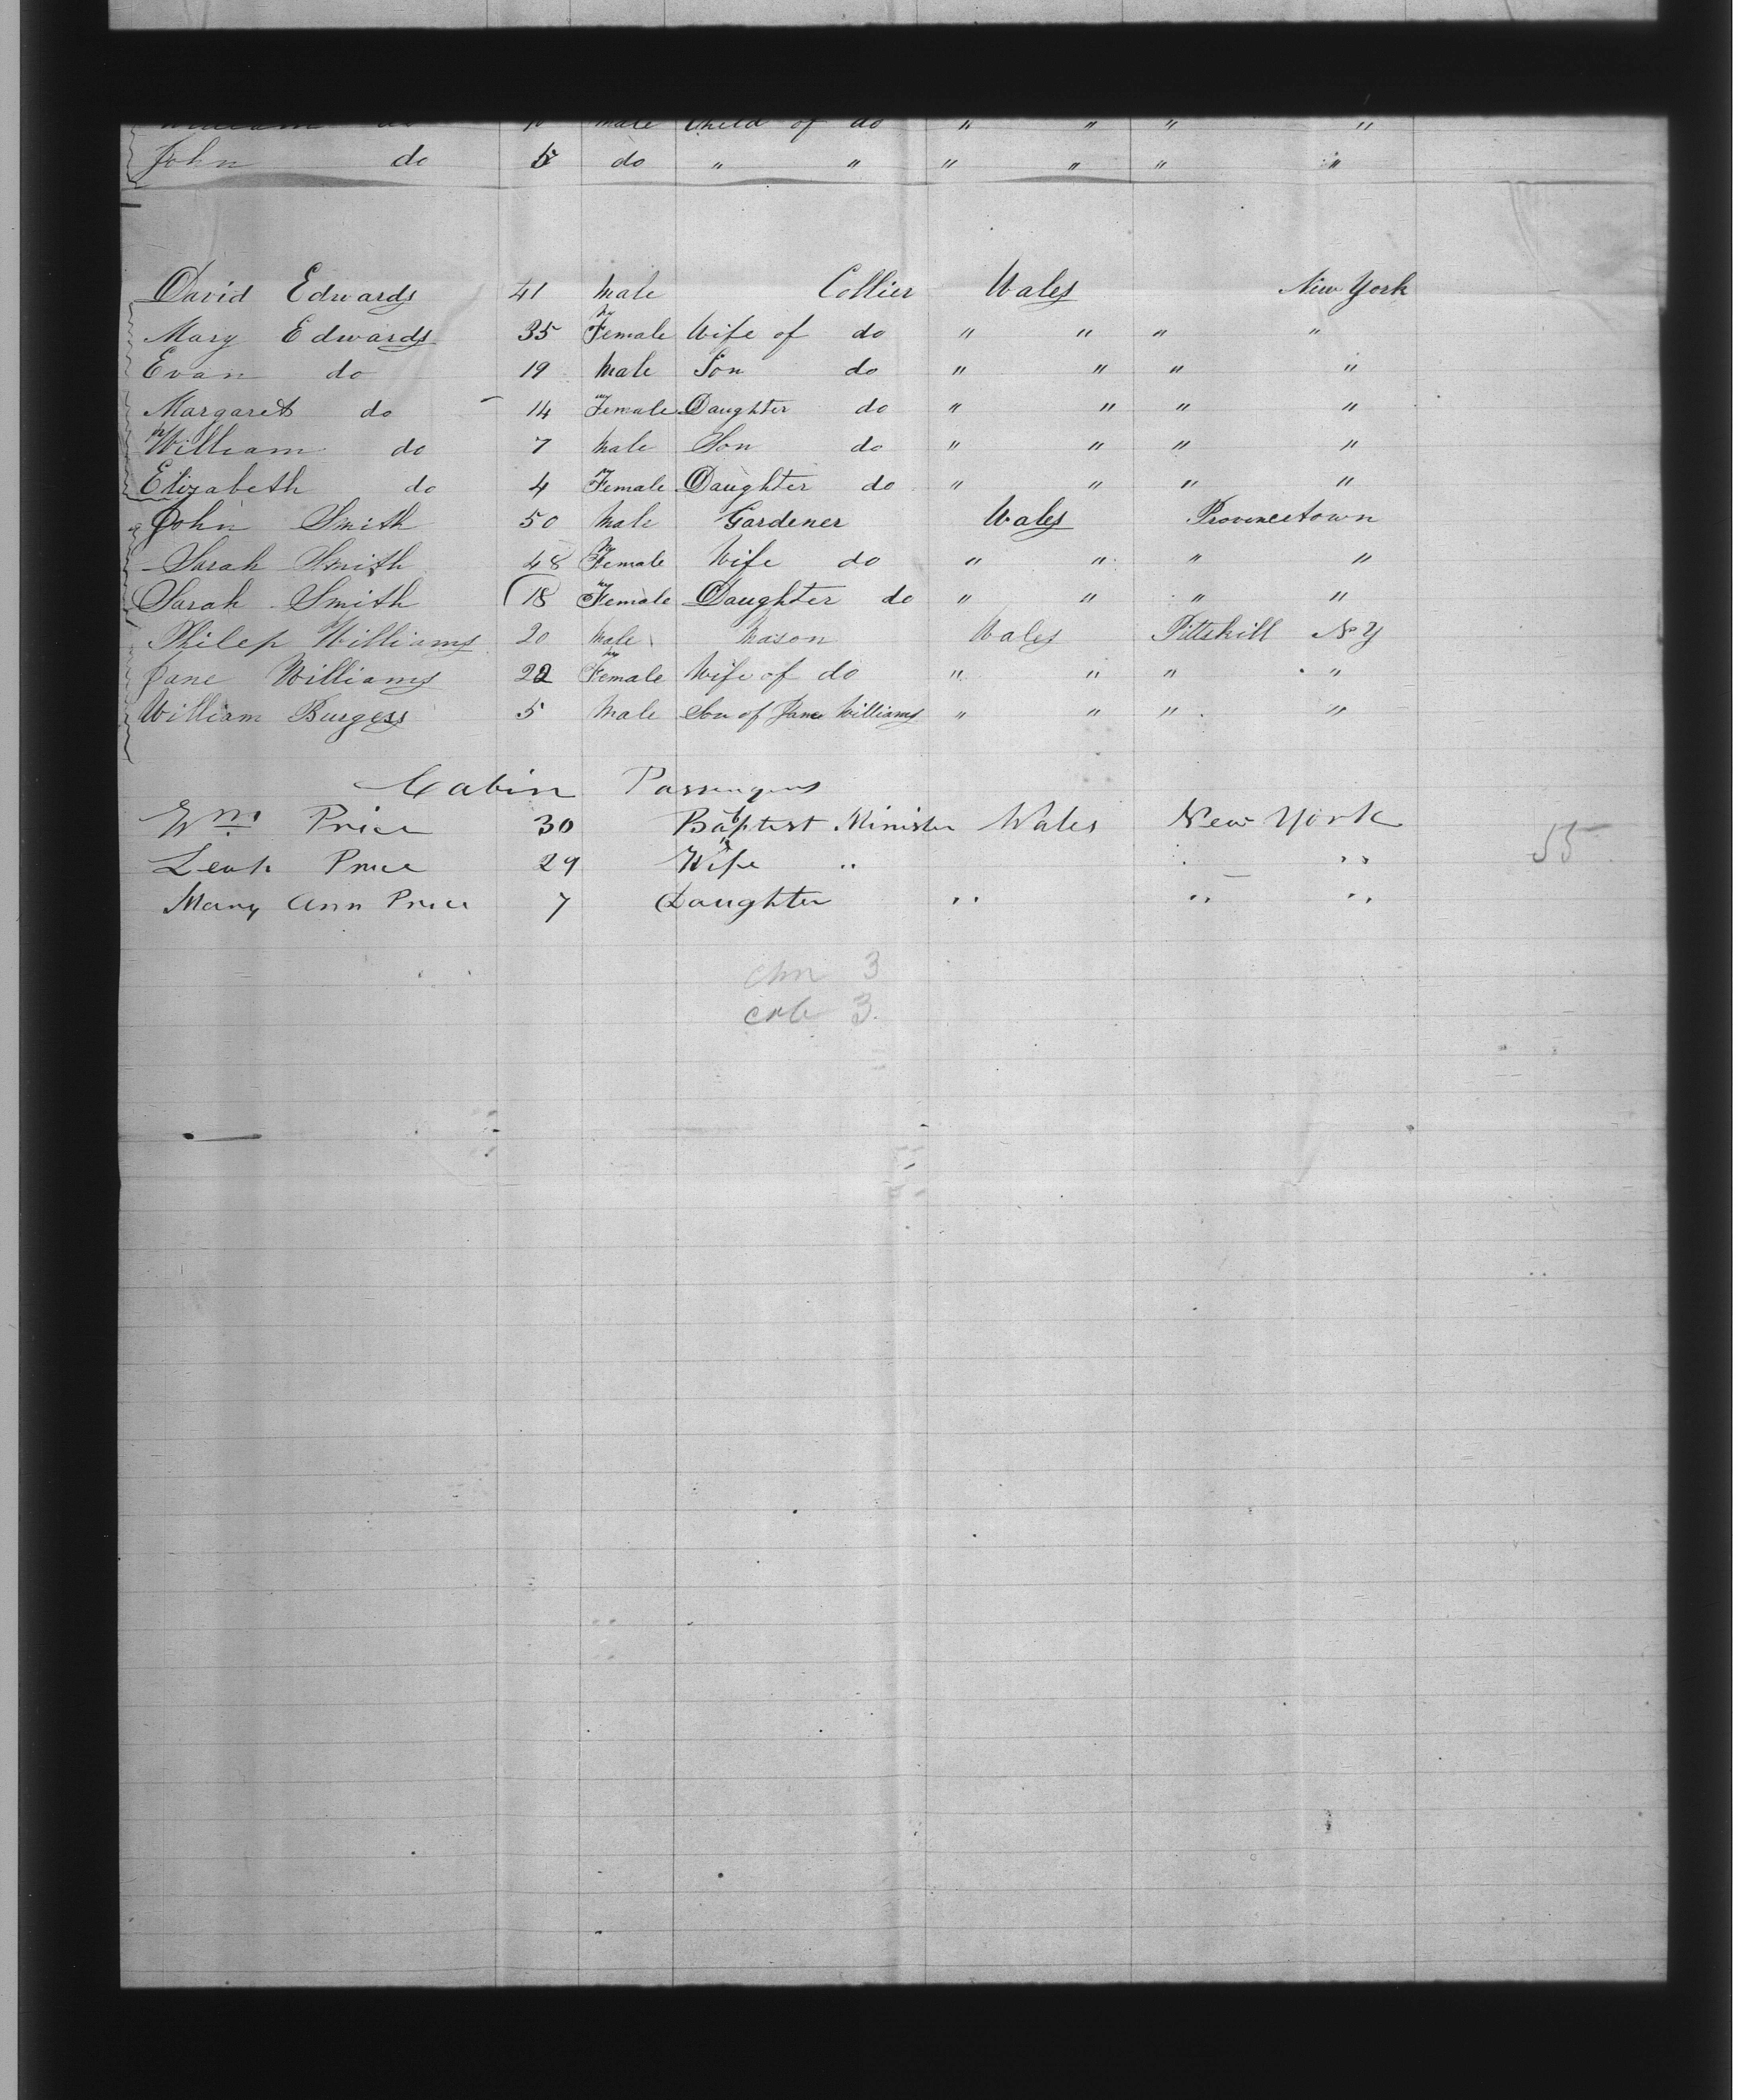 William do 10 Male Child of do " " " "
John do 5 do " " " " " "
David Edwards 41 Male Collier Wales New York
Mary Edwards 35 Female Wife of do " " " "
Evan do 19 Male Son do " " " "
Margaret do 14 Female Daughter do " " " "
William do 7 Male Son do " " " "
Elizabeth do 4 Female Daughter do " " " "
John Smith 50 Male Gardener Wales Provincetown
Sarah Smith 48 Female Wife do " " " "
Sarah Smith 18 Female Daughter do " " " "
Philep Williams 20 Male Mason Wales Pittskill N Y
Jane Williams 22 Female Wife of do " " " "
William Burgess 5 Male Son of Jane Williams " " " "
Cabin Passengers
Wm Price 30 Baptist Minister Wales New York
Leah Price 29 Wife " " "
55
Mary Ann Price 7 Daughter " " "
3
3.